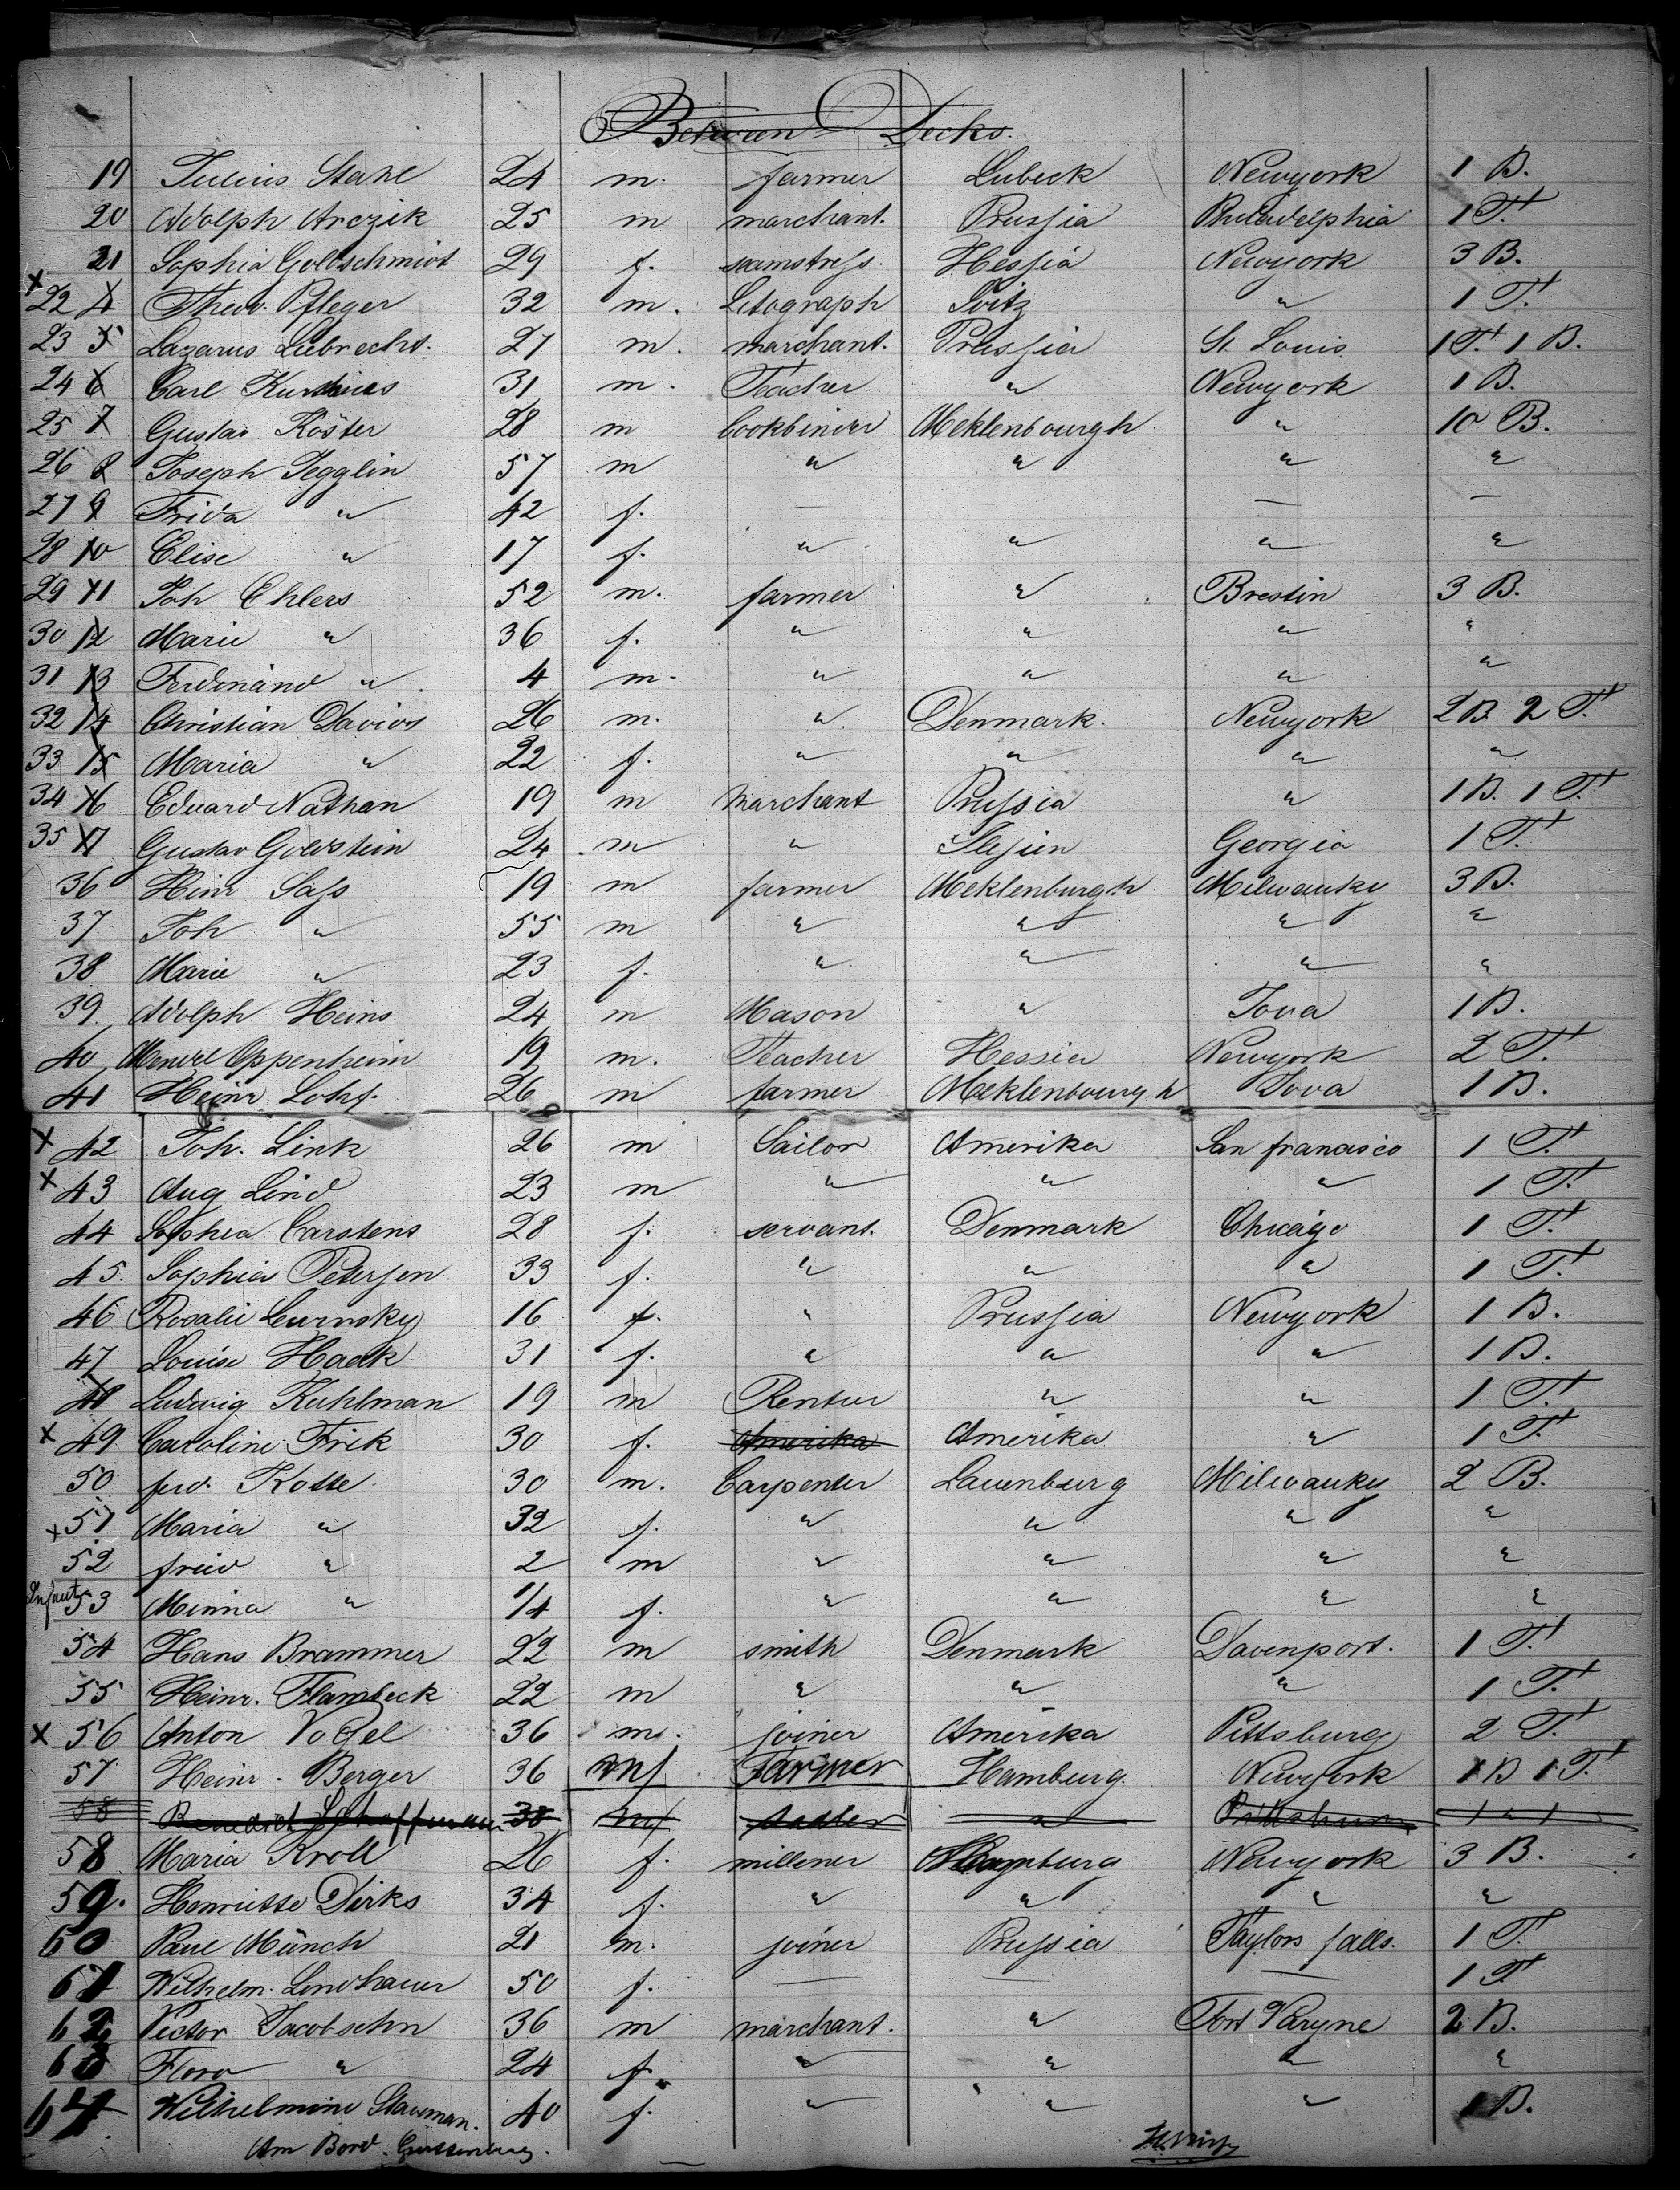 Between Decks.
19 Julius Stahl 24 m. farmer Lubeck Newyork 1 B.
20 Adolph Arczik 25 m marchant. Prussia Philadelphia 1 T.
21 Sophia Goldschmidt 29 f. seamstress. Hessia Newyork 3 B.
x 22 4 Theod. Pfleger 32 m. Litograph Switz " 1 T.
23 5 Lazarus Liebrecht. 27 m. marchant. Prussia St. Louis 1 T. 1 B.
24 6 Carl 31 m. Teacher " Newyork 1 B.
25 7 Gustav Köster 28 m bookbinder Meklenbourgh " 10 B.
26 8 Joseph Jegglin 57 m " " " "
27 9 Frida " 42 f. — — —
28 10 Elise " 17 f. " " " "
29 11 Joh Ehlers 52 m. farmer " Brestin 3 B.
30 12 Marie " 36 f. " " " "
31 13 Ferdinand " 4 m. " " " "
32 14 Christian Davids 26 m. " Denmark. Newyork 2 B. 2 T.
33 15 Maria " 22 f. " " " "
34 16 Eduard Nathan 19 m marchant Prussia " 1 B. 1 T.
35 17 Gustav Goldstein 24 m " Slesien Georgia 1 T.
36 Heinr Sass 19 m farmer Meklenburgh Milwauky 3 B.
37 Joh " 55 m " " " "
38 Marie " 23 f. " " " "
39 Adolph Heins 24 m Mason " Iova 1 B.
40 Oppenheim 19 m. Teacher Hessia Newyork 2 T.
41 Heinr Lohf. 26 m farmer Meklenbourgh Iova 1 B.
x 42 Joh. Link 26 m Sailor Amerika San francisco 1 T.
x 43 Aug Lind 23 m " " " 1 T.
44 Sophia Carstens 28 f. servant. Denmark Chicago 1 T.
45. Sophia Petersen 33 f. " " " 1 T.
46 Rosalie 16 f. " Prussia Newyork 1 B.
47 Louise Hack 31 f. " " " 1 B.
48 Ludwig Kuhlman 19 m Rentier " " 1 T.
x 49 Caroline Frik 30 f. Amerika Amerika " 1 T.
50 ferd. Kotte 30 m. Carpenter Lauenburg Milwauky 2 B.
x 51 Maria " 32 f. " " " "
52 fried " 2 m " " " "
Infant 53 Minna " 1/4 f. " " " "
54 Hans Brammer 22 m smith Denmark Davenport. 1 T.
55 Heinr. Flambeck 22 m " " " 1 T.
x 56 Anton Vogel 36 m. joiner Amerika Pittsburg 2 T.
57 Heinr. Berger 36 m Farmer Hamburg. Newyork 1 B 1 T.
58 Benedict 38 m " Pittsburg
58 Maria Kroll 26 f. millener Hamburg Newyork 3 B.
59. Henriette Dirks 34 f. " " " "
60 Paul Münch 21 m. joiner Prussia Taylors falls. 1 T.
61 Wilhelm. Lindhauer 50 f. — — — 1 T
62 Victor Jacobsohn 36 m marchant. " Fort Wayne 2 B.
63 Flora " 24 f. " " " "
64 Wilhelmine 40 f. " " " 1 B.
Am Bord